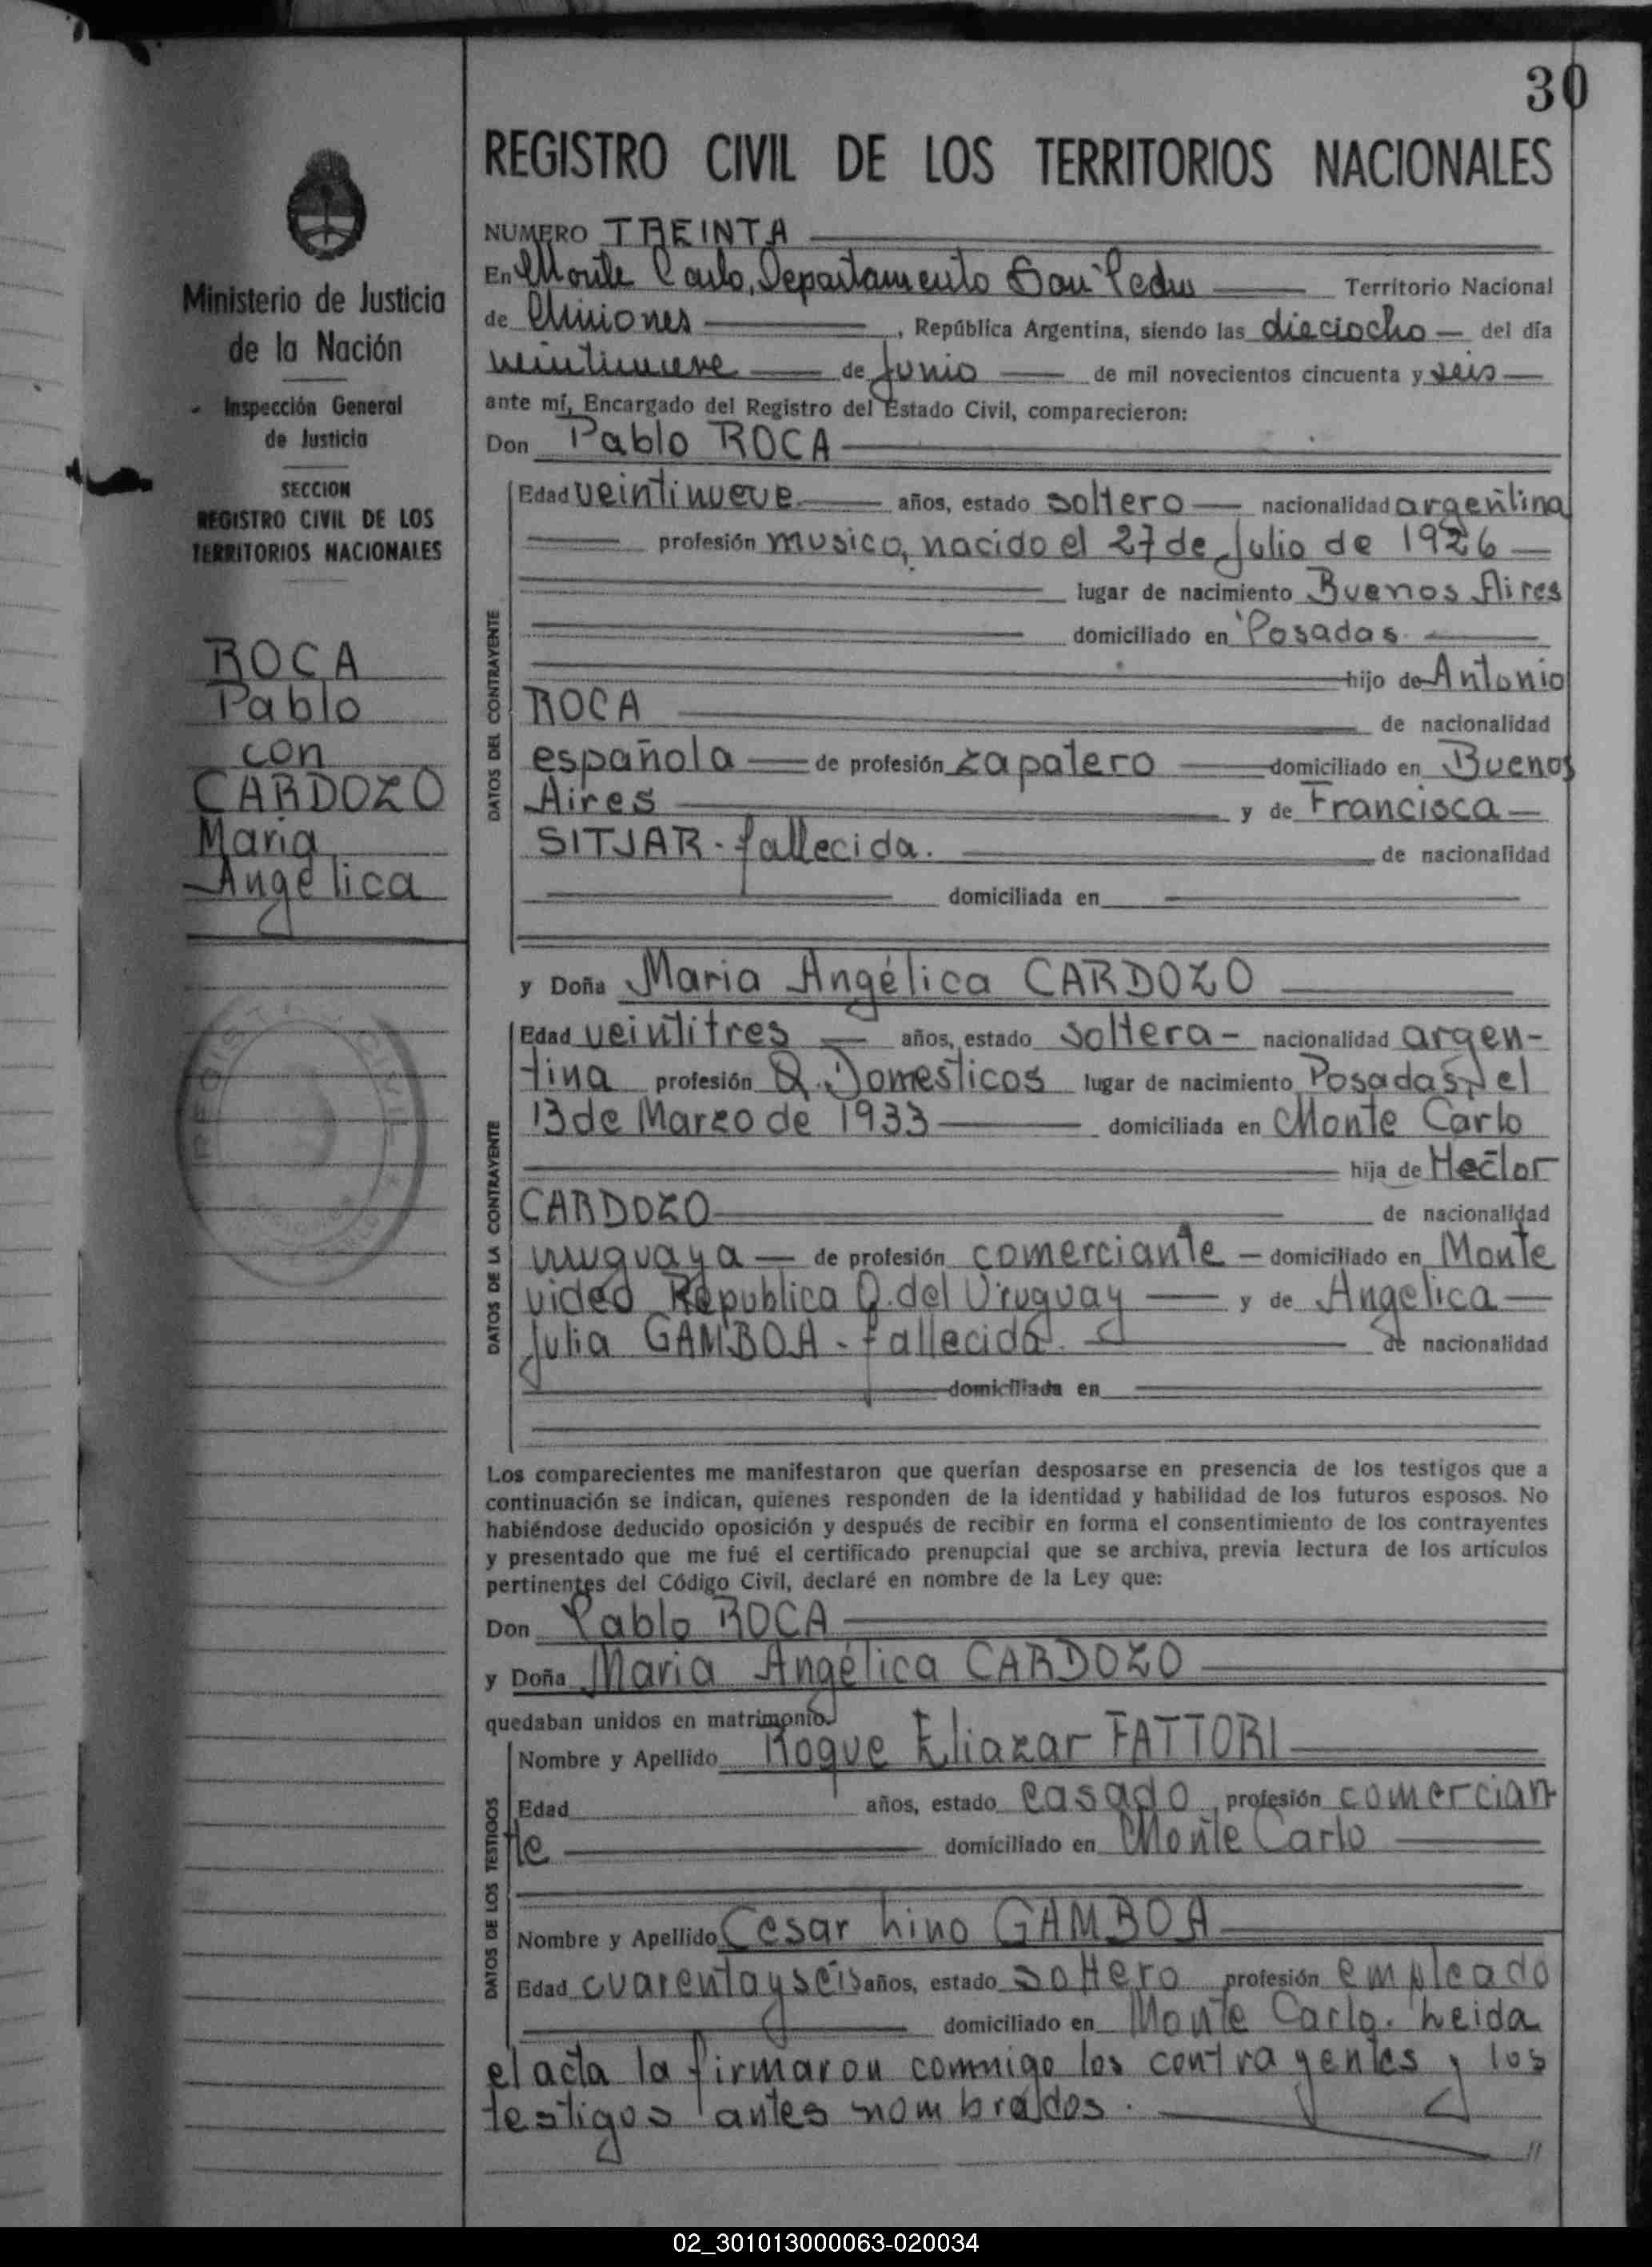 30
REGISTRO CIVIL DE LOS TERRITORIOS NACIONALES
Ministerio de Justicia
de la Nación
Inspección General
de Justicia
SECCION
REGISTRO CIVIL DE LOS
TERRITORIOS NACIONALES
ROCA
Pablo
con
CARDOZO
Maria
Angélica
REGISTRO CIVIL
NUMERO TREINTA
En Monte Carlo, Departamento San Pedro Territorio Nacional
de Misiones, República Argentina, siendo las dieciocho del día
veintinueve de Junio de mil novecientos cincuenta y seis
ante mí, Encargado del Registro del Estado Civil, comparecieron:
Don Pablo ROCA
DATOS DEL CONTRAYENTE
Edad veintinueve años, estado soltero nacionalidad argentina
profesión musico, nacido el 27 de Julio de 1926
lugar de nacimiento Buenos Aires
domiciliado en Posadas
hijo de Antonio
ROCA de nacionalidad
española de profesión zapatero domiciliado en Buenos
Aires y de Francisca
SITJAR - fallecida. de nacionalidad
domiciliada en
y Doña Maria Angélica CARDOZO
DATOS DE LA CONTRAYENTE
Edad veintitres años, estado soltera - nacionalidad argen-
tina profesión Q. Domesticos lugar de nacimiento Posadas, el
13 de Marzo de 1933 domiciliada en Monte Carlo
hija de Hector
CARDOZO de nacionalidad
uruguaya de profesión comerciante domiciliado en Monte
video Republica O. del Uruguay y de Angelica
Julia GAMBOA - fallecida. de nacionalidad
domiciliada en
Los comparecientes me manifestaron que querían desposarse en presencia de los testigos que a
continuación se indican, quienes responden de la identidad y habilidad de los futuros esposos. No
habiéndose deducido oposición y después de recibir en forma el consentimiento de los contrayentes
y presentado que me fué el certificado prenupcial que se archiva, previa lectura de los artículos
pertinentes del Código Civil, declaré en nombre de la Ley que:
Don Pablo ROCA
y Doña Maria Angélica CARDOZO
quedaban unidos en matrimonio.
DATOS DE LOS TESTIGOS
Nombre y Apellido Roque Eliazar FATTORI
Edad años, estado casado, profesión comercian
te domiciliado en Monte Carlo
Nombre y Apellido Cesar Lino GAMBOA
Edad cuarenta y seis años, estado soltero profesión empleado
domiciliado en Monte Carlo. Leida
el acta la firmaron commigo los contrayentes y los
testigos antes nombrados.
02_301013000063-020034